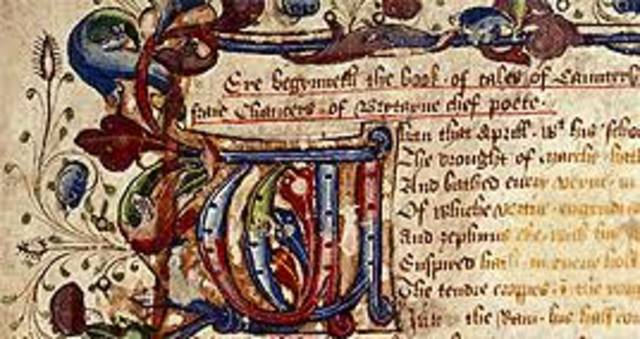 Ere begynneth the book of tales of Caunterb
Chaucers of Bretayne chief poete
Whan that Aprill wt his
The drought of marche hath
And bathed euery veyne
Of whiche vertu engendr
And zephirus eke with his
Enspired hath in euery holt
The tendre croppes & the
the Ram his half